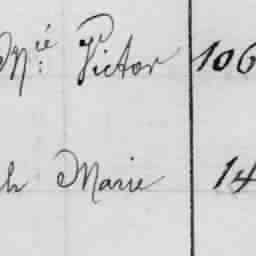 M.ié Victor 106
h Marie 14